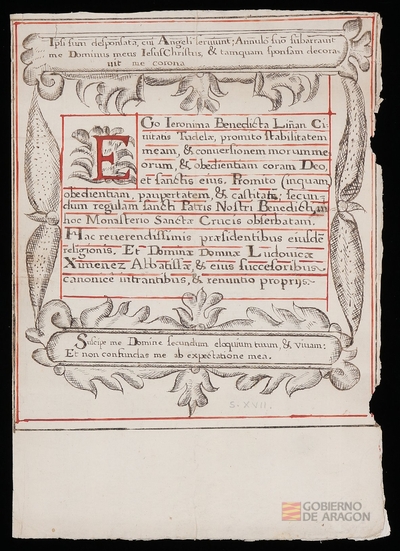 Ipsi sum desponsata, cui Angeli serviunt; Annulo suo subarravit
me Dominus meus IesusChristus, & tamquam sponsam decora-
vit me corona
EGo Ieronima Benedicta Liñan Ci-
vitatis Tudelæ, promito stabilitatem
meam, & conversionem morum me-
orum, & obedientiam coram Deo,
et sanctis eius. Promito (inquam)
obedientiam, paupertatem, & castitatē, secun-
dum regulam sancti Patris Nostri Benedicti, in
hoc Monasterio Sanctæ Crucis observatam.
Hac reverendissimis præsidentibus eiusdē
religionis, Et Dominæ Domnæ Ludovicæ
Ximenez Abbatissæ, & eius successoribus
canonicè intrantibus, & renuntio proprijs.
Suscipe me Domine secundum eloquium tuum, & vivam:
Et non confundas me ab expectatione mea.
S. XVII.
GOBIERNO
DE ARAGON